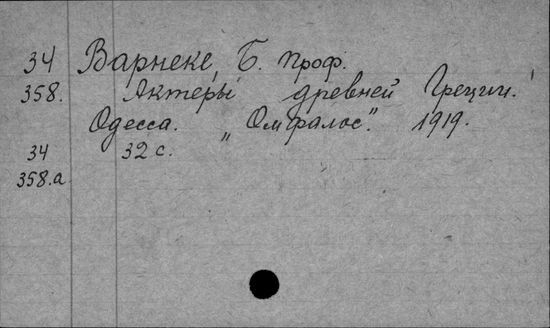 34 Варнеке, Б. проф.
358. Актеры древней Греции.
Одесса. „Омфалос". 1919.
34 32 с.
358.a